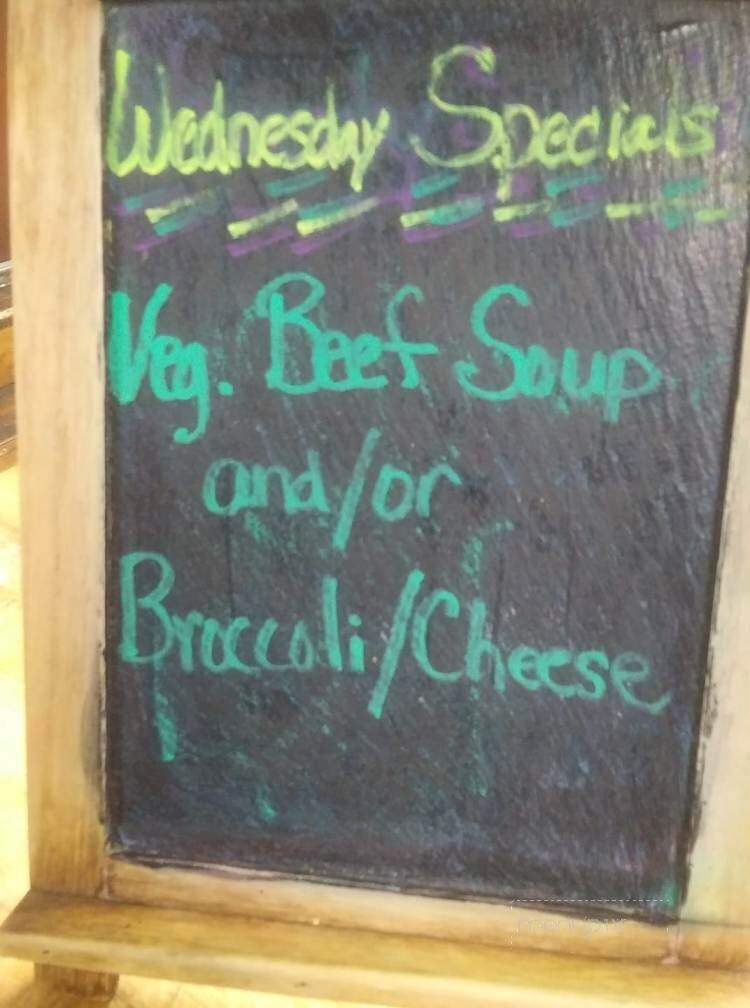 Wednesday Specials
Veg. Beef Soup
and/or
Broccoli/Cheese